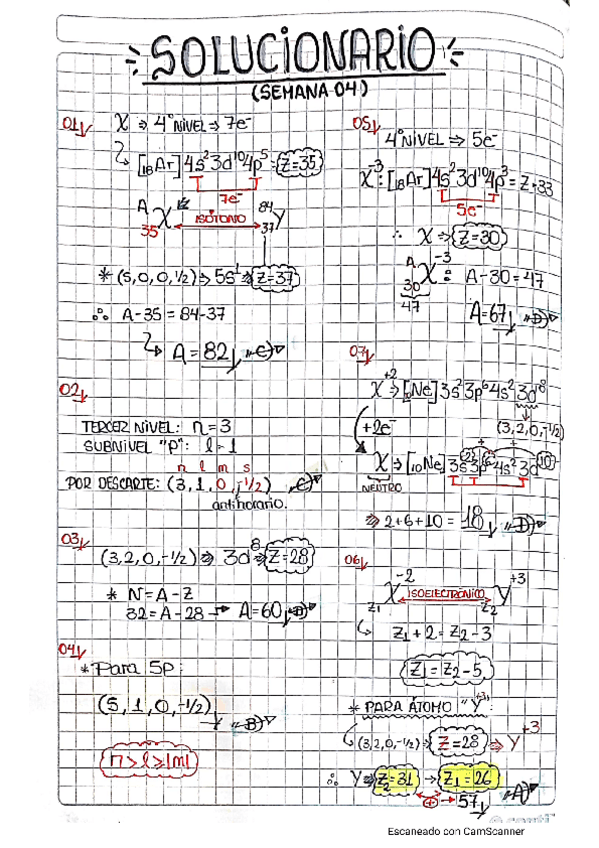 SOLUCIONARIO
(SEMANA 04)
01
X ⇒ 4° NIVEL ⇒ 7e⁻
[₁₈Ar] 4s² 3d¹⁰ 4p⁵ = Z=35
7e⁻
A 35 X ISÓTONO 84 37 Y
* (5, 0, 0, 1/2) ⇒ 5s¹ ⇒ Z=37
∴ A-35 = 84-37
A = 82 "C)"
02
TERCER NIVEL: n=3
SUBNIVEL "P": l=1
n l m s
POR DESCARTE: (3, 1, 0, -1/2) "C)"
antihorario.
03
(3,2,0,-1/2) ⇒ 3d⁸ ⇒ Z=28
* N=A-Z
32=A-28 → A=60
04
* Para 5p:
(5, 1, 0, -1/2) "B)"
n > l ≥ |m|
05
4° NIVEL ⇒ 5e⁻
X⁻³: [₁₈Ar] 4s² 3d¹⁰ 4p³ = Z=33
5e⁻
∴ X ⇒ Z=30
A 30 X⁻³ : A-30=47
47
A=67 "D)"
07
X⁺² ⇒ [₁₀Ne] 3s² 3p⁶ 4s² 3d⁸
+2e⁻
(3,2,0,-1/2)
X ⇒ [₁₀Ne] 3s² 3p⁶ 4s² 3d¹⁰
NEUTRO
⇒ 2+6+10 = 18 "D)"
06
Z₁ X⁻² ISOELECTRÓNICO Z₂ Y⁺³
Z₁+2=Z₂-3
Z₁=Z₂-5
* PARA ÁTOMO "Y⁺³":
(3,2,0,-1/2) ⇒ Z=28 ⇒ Y⁺³
∴ Y ⇒ Z₂=31 → Z₁=26
+ → 57 "A)"
Escaneado con CamScanner